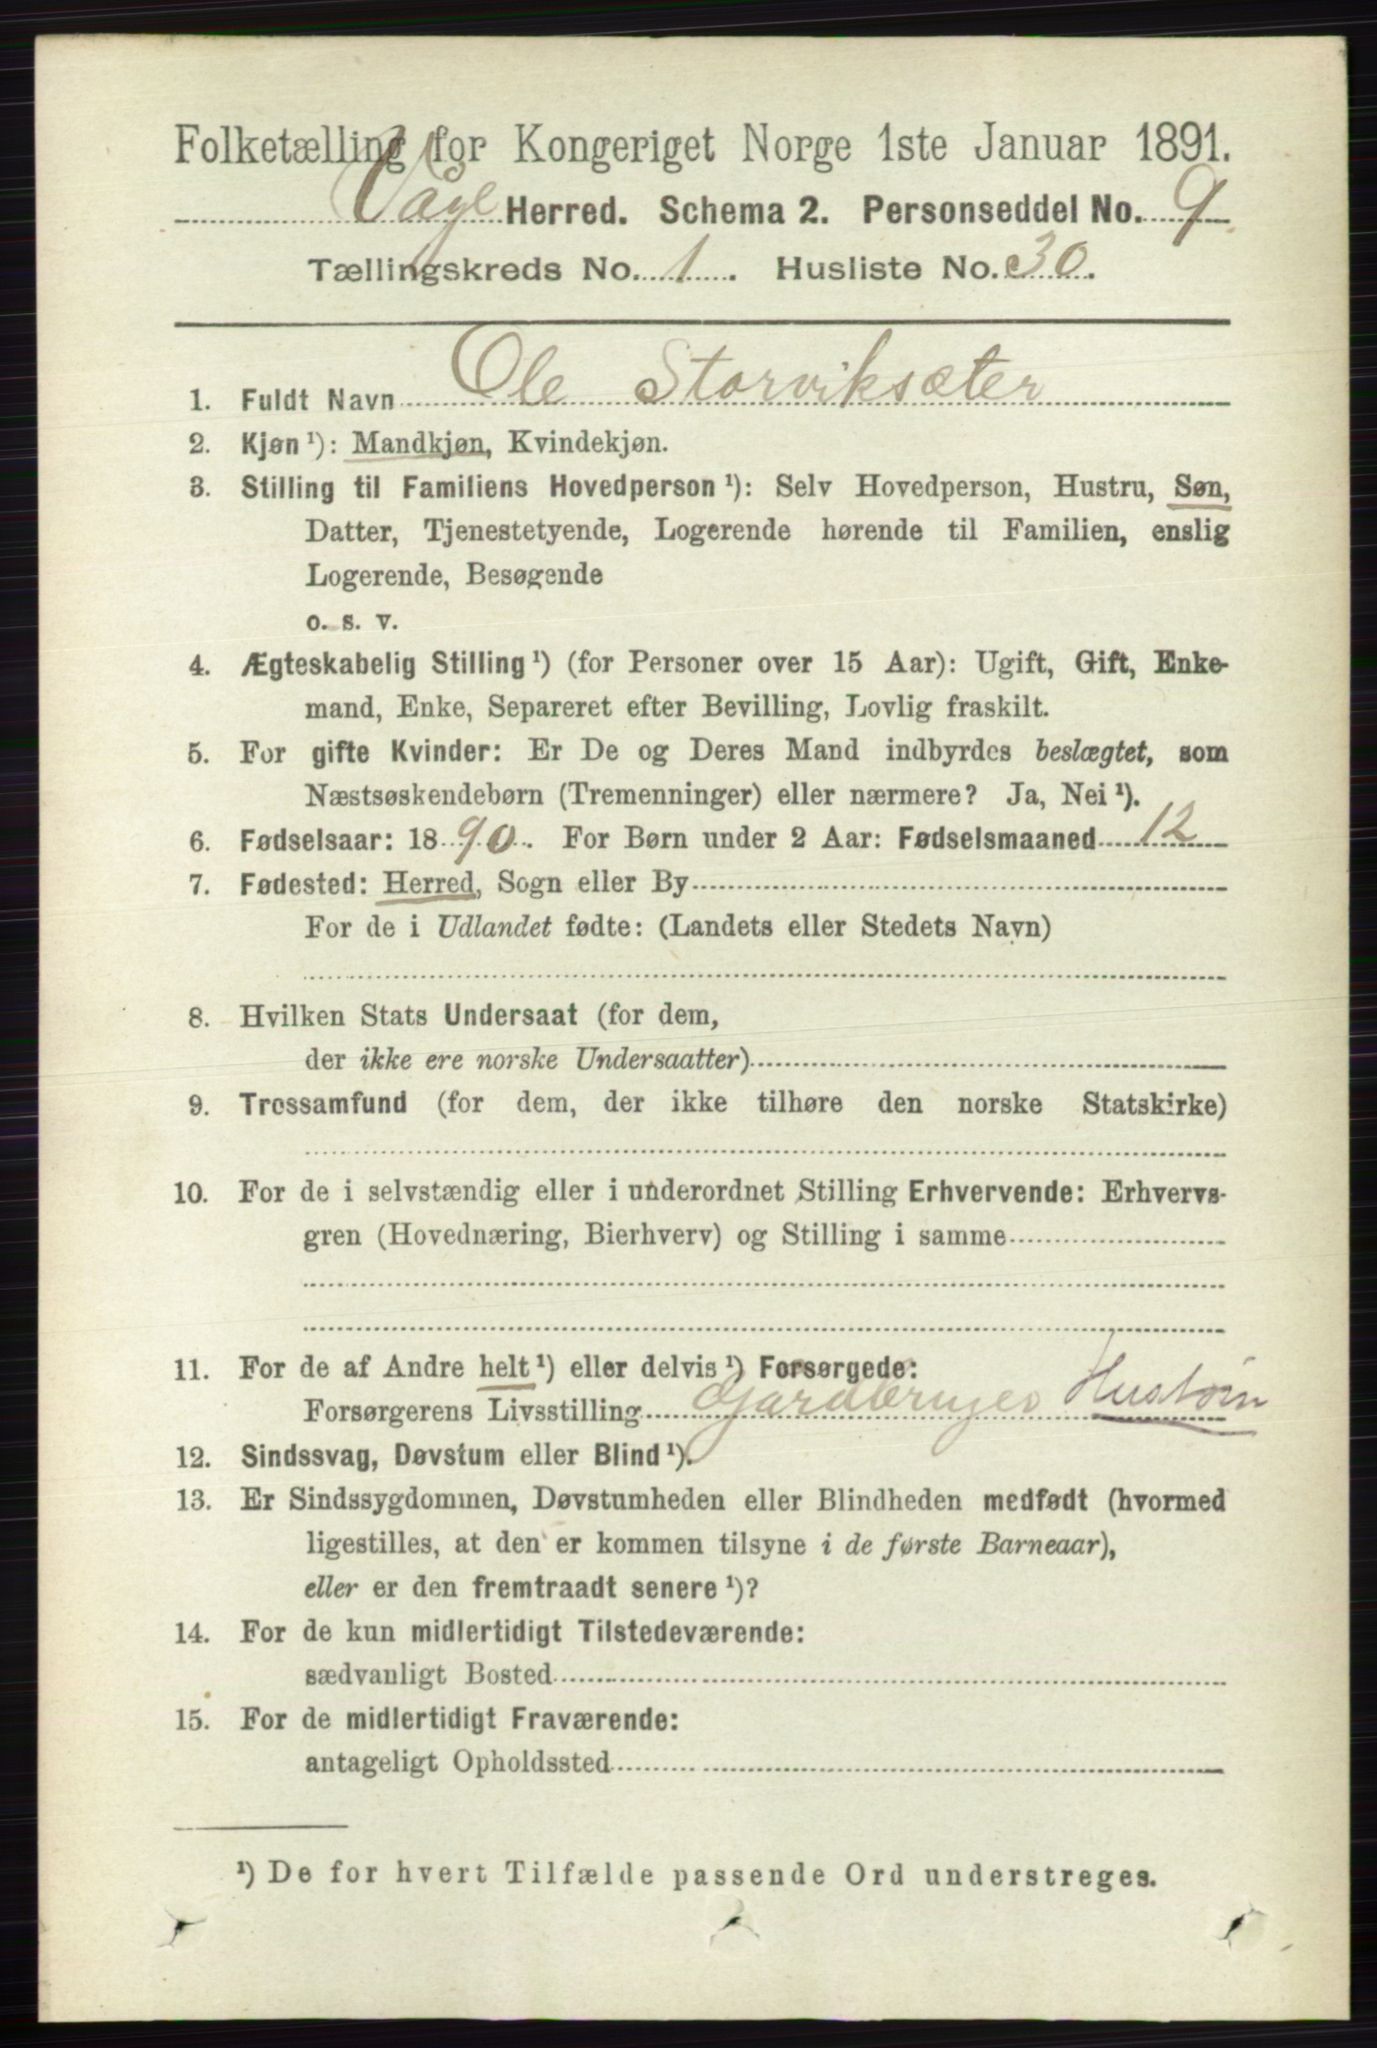 Folketælling for Kongeriget Norge 1ste Januar 1891.
Herred. Schema 2. Personseddel No. 9
Tællingskreds No. 1. Husliste No. 30.
1. Fuldt Navn Ole Storviksæter
2. Kjøn ¹): Mandkjøn, Kvindekjøn.
3. Stilling til Familiens Hovedperson ¹): Selv Hovedperson, Hustru, Søn,
Datter, Tjenestetyende, Logerende hørende til Familien, enslig
Logerende, Besøgende
o. s. v.
4. Ægteskabelig Stilling ¹) (for Personer over 15 Aar): Ugift, Gift, Enke-
mand, Enke, Separeret efter Bevilling, Lovlig fraskilt.
5. For gifte Kvinder: Er De og Deres Mand indbyrdes beslægtet, som
Næstsøskendebørn (Tremenninger) eller nærmere? Ja, Nei ¹).
6. Fødselsaar: 1890. For Børn under 2 Aar: Fødselsmaaned 12
7. Fødested: Herred, Sogn eller By
For de i Udlandet fødte: (Landets eller Stedets Navn)
8. Hvilken Stats Undersaat (for dem,
der ikke ere norske Undersaatter)
9. Trossamfund (for dem, der ikke tilhøre den norske Statskirke)
10. For de i selvstændig eller i underordnet Stilling Erhvervende: Erhvervs-
gren (Hovednæring, Bierhverv) og Stilling i samme
11. For de af Andre helt ¹) eller delvis ¹) Forsørgede:
Forsørgerens Livsstilling
12. Sindssvag, Døvstum eller Blind ¹).
13. Er Sindssygdommen, Døvstumheden eller Blindheden medfødt (hvormed
ligestilles, at den er kommen tilsyne i de første Barneaar),
eller er den fremtraadt senere ¹)?
14. For de kun midlertidigt Tilstedeværende:
sædvanligt Bosted
15. For de midlertidigt Fraværende:
antageligt Opholdssted
¹) De for hvert Tilfælde passende Ord understreges.